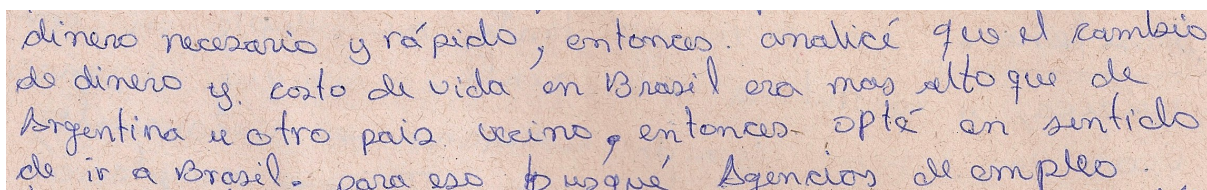 dinero necesario y rápido, entonces. analicé que el cambio
de dinero y. costo de vida en Brasil era mas alto que de
Argentina u otro pais vecino, entonces opté en sentido
de ir a Brasil. para eso busqué Agencias de empleo.